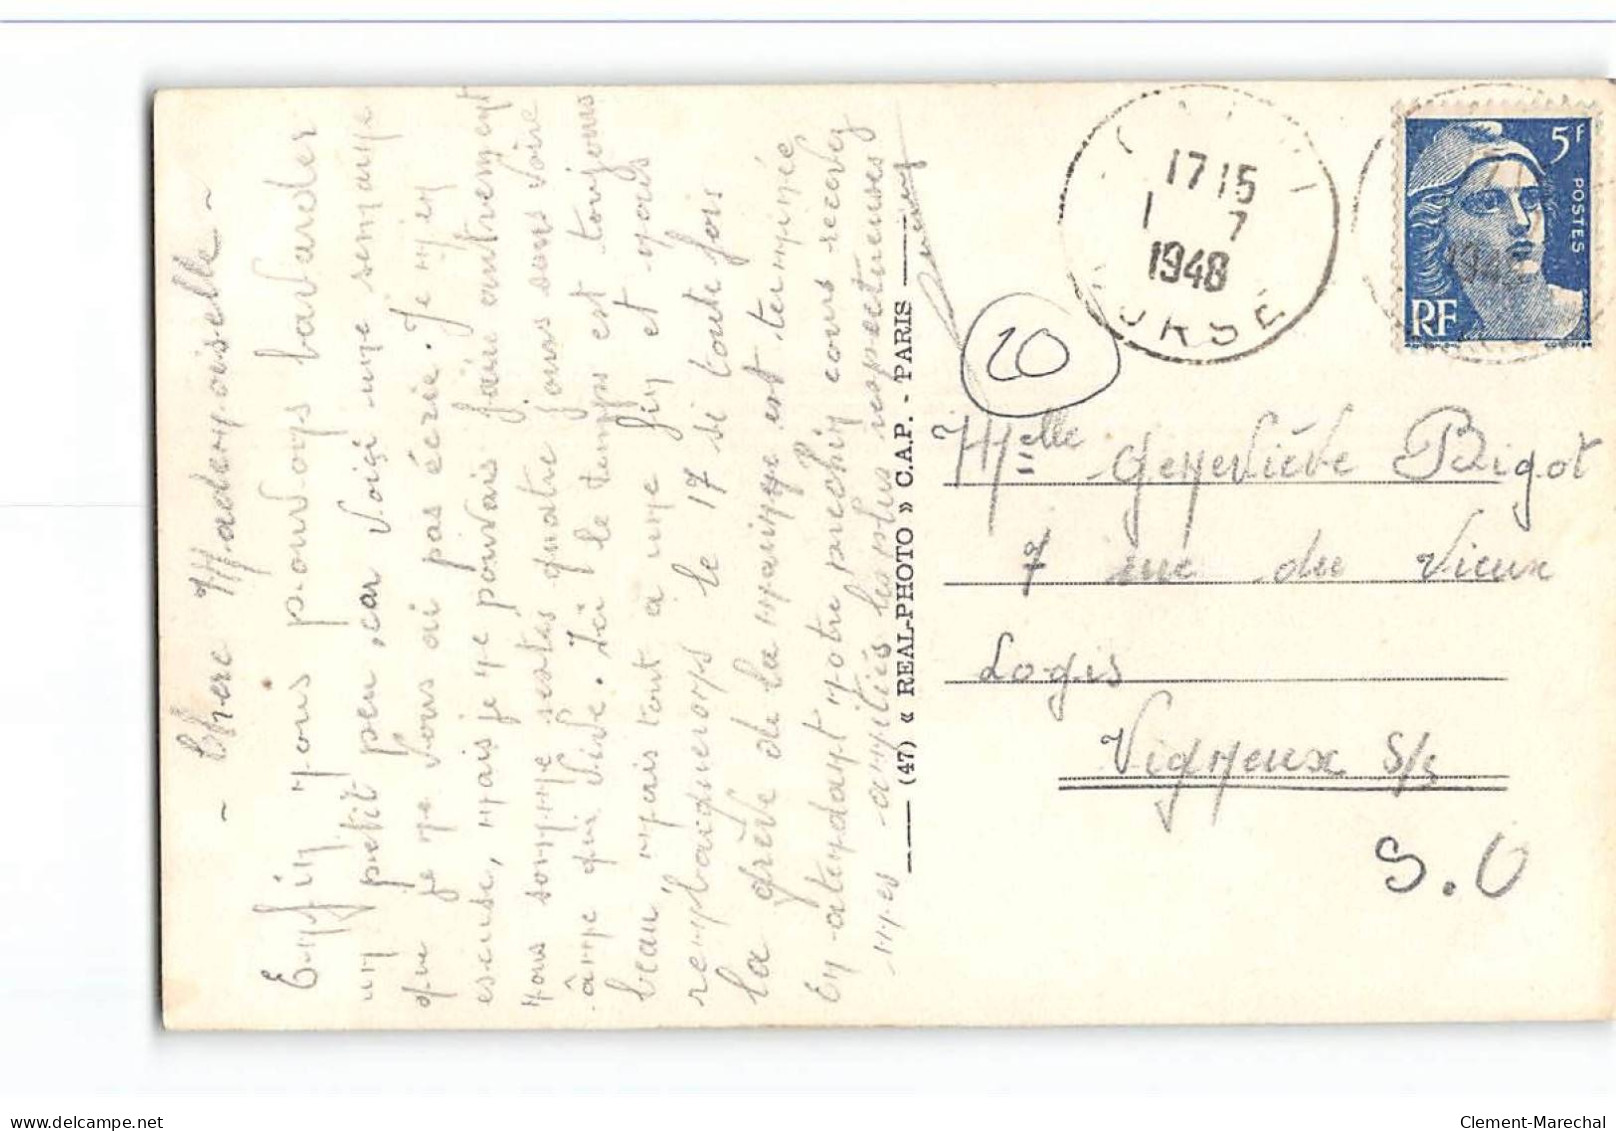 ~ Chere Mademoiselle ~
Enfin nous pouvons bavarder
un petit peu car voici une semaine
que je ne vous ai pas écrie. Je m'en
escuse, mais je ne pouvais faire autrement
nous somme restés quatre jours sans voire
âme qui vive. Ici le temps est toujours
beau mais tout à une fin et nous
rembarquerons le 17 si toute fois
la grève de la marine est terminée
En attendant votre prochin cour recevez
mes amitiés les plus respectueuses
(47) « REAL-PHOTO » C.A.P. - PARIS
1715
1 7
1948
CORSE
5f
POSTES
RF
20
Melle Geneviève Bigot
7 rue du Vieux
Logis
Vigneux S/s
S.O
delcampe.net
Clement-Marechal